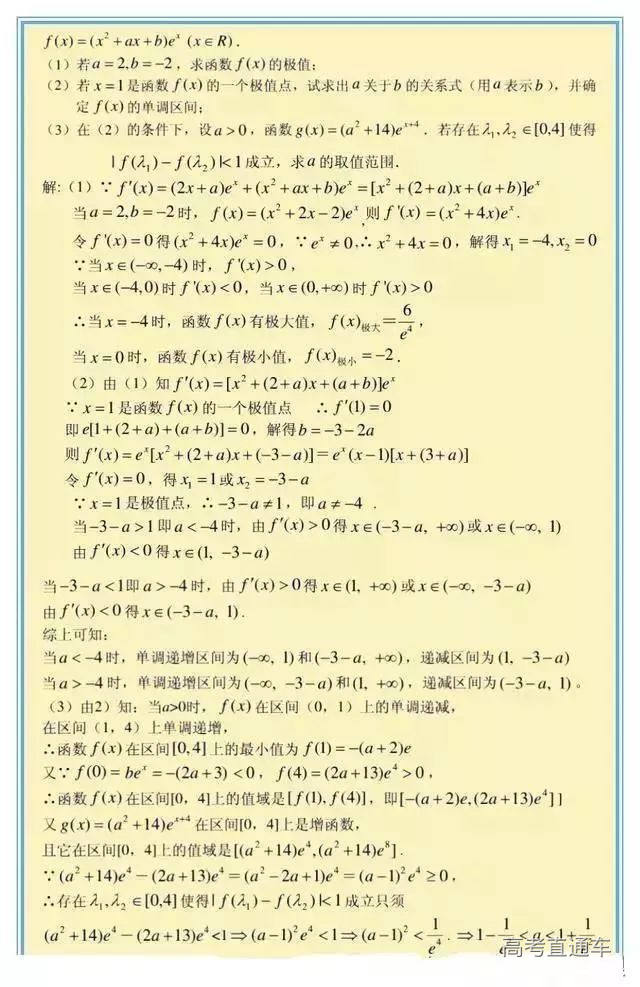 f(x)=(x²+ax+b)eˣ (x∈R).
(1)若a=2,b=-2,求函数f(x)的极值;
(2)若x=1是函数f(x)的一个极值点,试求出a关于b的关系式(用a表示b),并确
定f(x)的单调区间;
(3)在(2)的条件下,设a>0,函数g(x)=(a²+14)eˣ⁺⁴.若存在λ₁,λ₂∈[0,4]使得
|f(λ₁)-f(λ₂)|<1成立,求a的取值范围.
解:(1)∵f′(x)=(2x+a)eˣ+(x²+ax+b)eˣ=[x²+(2+a)x+(a+b)]eˣ
当a=2,b=-2时,f(x)=(x²+2x-2)eˣ,则f′(x)=(x²+4x)eˣ.
令f′(x)=0得(x²+4x)eˣ=0,∵eˣ≠0,∴x²+4x=0,解得x₁=-4,x₂=0
∵当x∈(-∞,-4)时,f′(x)>0,
当x∈(-4,0)时f′(x)<0,当x∈(0,+∞)时f′(x)>0
∴当x=-4时,函数f(x)有极大值,f(x)极大=6/e⁴,
当x=0时,函数f(x)有极小值,f(x)极小=-2.
(2)由(1)知f′(x)=[x²+(2+a)x+(a+b)]eˣ
∵x=1是函数f(x)的一个极值点 ∴f′(1)=0
即e[1+(2+a)+(a+b)]=0,解得b=-3-2a
则f′(x)=eˣ[x²+(2+a)x+(-3-a)]=eˣ(x-1)[x+(3+a)]
令f′(x)=0,得x₁=1或x₂=-3-a
∵x=1是极值点,∴-3-a≠1,即a≠-4 .
当-3-a>1即a<-4时,由f′(x)>0得x∈(-3-a, +∞)或x∈(-∞, 1)
由f′(x)<0得x∈(1, -3-a)
当-3-a<1即a>-4时,由f′(x)>0得x∈(1, +∞)或x∈(-∞, -3-a)
由f′(x)<0得x∈(-3-a, 1).
综上可知:
当a<-4时,单调递增区间为(-∞, 1)和(-3-a, +∞),递减区间为(1, -3-a)
当a>-4时,单调递增区间为(-∞, -3-a)和(1, +∞),递减区间为(-3-a, 1)。
(3)由2)知:当a>0时,f(x)在区间(0,1)上的单调递减,
在区间(1,4)上单调递增,
∴函数f(x)在区间[0,4]上的最小值为f(1)=-(a+2)e
又∵f(0)=beˣ=-(2a+3)<0,f(4)=(2a+13)e⁴>0,
∴函数f(x)在区间[0,4]上的值域是[f(1),f(4)],即[-(a+2)e,(2a+13)e⁴]]
又g(x)=(a²+14)eˣ⁺⁴在区间[0,4]上是增函数,
且它在区间[0,4]上的值域是[(a²+14)e⁴,(a²+14)e⁸].
∵(a²+14)e⁴-(2a+13)e⁴=(a²-2a+1)e⁴=(a-1)²e⁴≥0,
∴存在λ₁,λ₂∈[0,4]使得|f(λ₁)-f(λ₂)|<1成立只须
(a²+14)e⁴-(2a+13)e⁴<1⇒(a-1)²e⁴<1⇒(a-1)²<1/e⁴.⇒1-1/e²<a<1+1/e²
高考直通车